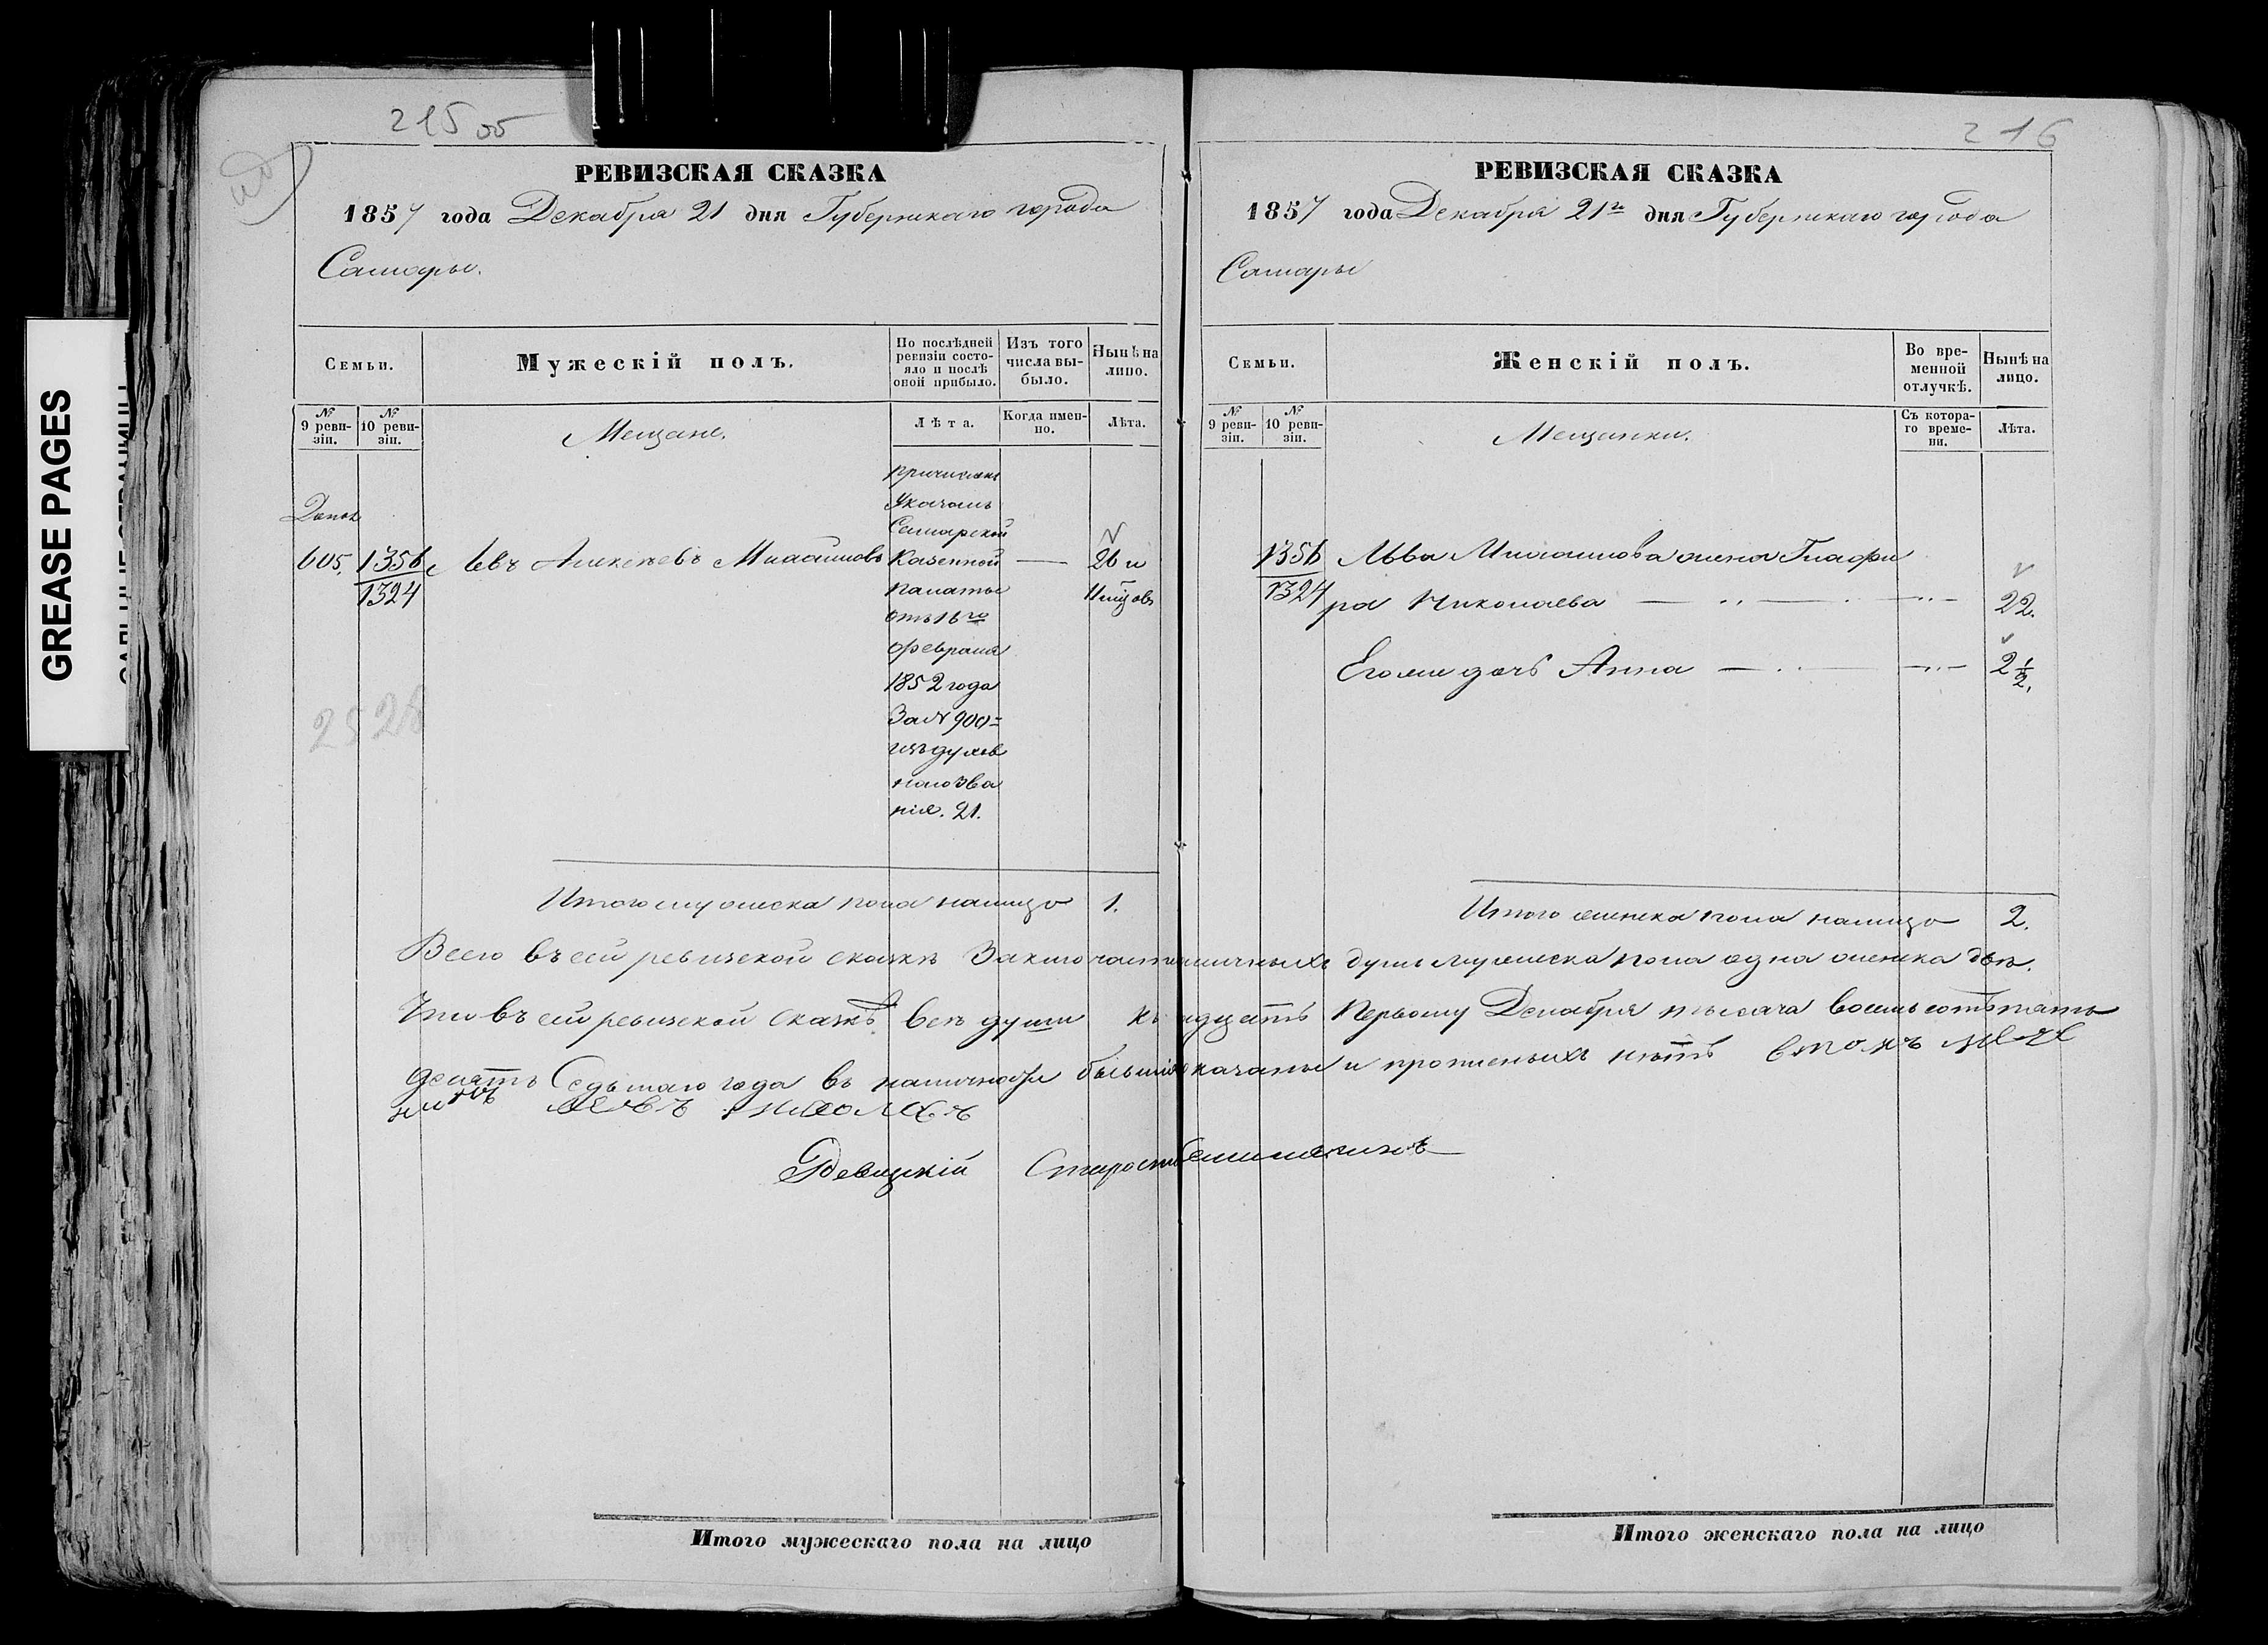 215 об
216
GREASE PAGES
РЕВИЗСКАЯ СКАЗКА
1857 года Декабря 21 дня Губернскаго города
Самары.
Семьи.
Мужескій полъ.
По послѣдней ревизіи состояло и послѣ оной прибыло.
Изъ того числа выбыло.
Нынѣ на лицо.
№ 9 ревизіи.
№ 10 ревизіи.
Мещане.
Лѣта.
Когда именно.
Лѣта.
причисленъ
Указомъ
Самарской
605. 1356 Левъ Алексѣевъ Казенной — 26 и
1324 палаты
отъ 16го
февраля
1852 года
За № 900=
изъ духов
наго зва
нія. 21.
2528
Итого мужеска пола налицо 1.
РЕВИЗСКАЯ СКАЗКА
1857 года Декабря 21го дня Губернскаго города
Самары
Семьи.
Женскій полъ.
Во временной отлучкѣ.
Нынѣ на лицо.
№ 9 ревизіи.
№ 10 ревизіи.
Мещанки.
Съ котораго времени.
Лѣта.
1356 Льва жена Глафи
1324 ра Николаева — 22.
Его же дочь Анна — 2 1/2.
Итого женска пола налицо 2.
Всего въ сей ревизской сказкѣ наличныхъ душъ мужеска пола одна женска двѣ.
Что въ сей ревизской сказкѣ всѣ души къ Первому Декабря тысяча восемь сотъ пять
десятъ Седьмаго года въ наличности показаны и прописныхъ нѣтъ въ томъ
Ревизскій Староста
Итого мужескаго пола на лицо
Итого женскаго пола на лицо